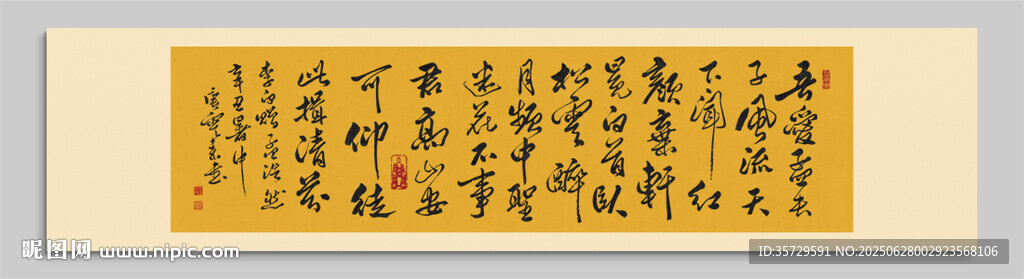 吾愛孟夫
子風流天
下聞紅
顏棄軒
冕白首臥
松雲醉
月頻中聖
迷花不事
君高山安
可仰徒
此揖清芬
李白贈孟浩然
辛丑暑中
昵图网 www.nipic.com
ID:35729591 NO:20250628002923568106